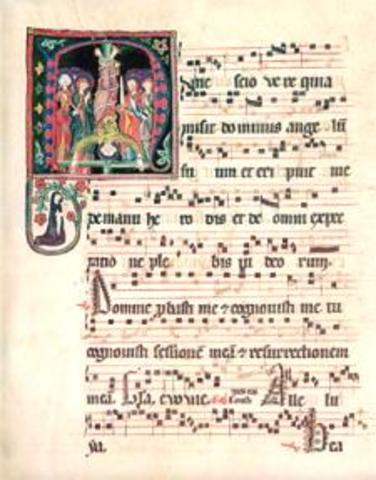 Nunc scio vere quia
misit do minus ange lū
su um et eri puit me
de manu he ro dis et de omni expec
tatio ne ple bis iu deo rum.
Domine pbasti me ⁊ cognovisti me tu
cognovisti sessionē meā ⁊ resurrectionem
meā. evovae. Alle lu
ya. Bea